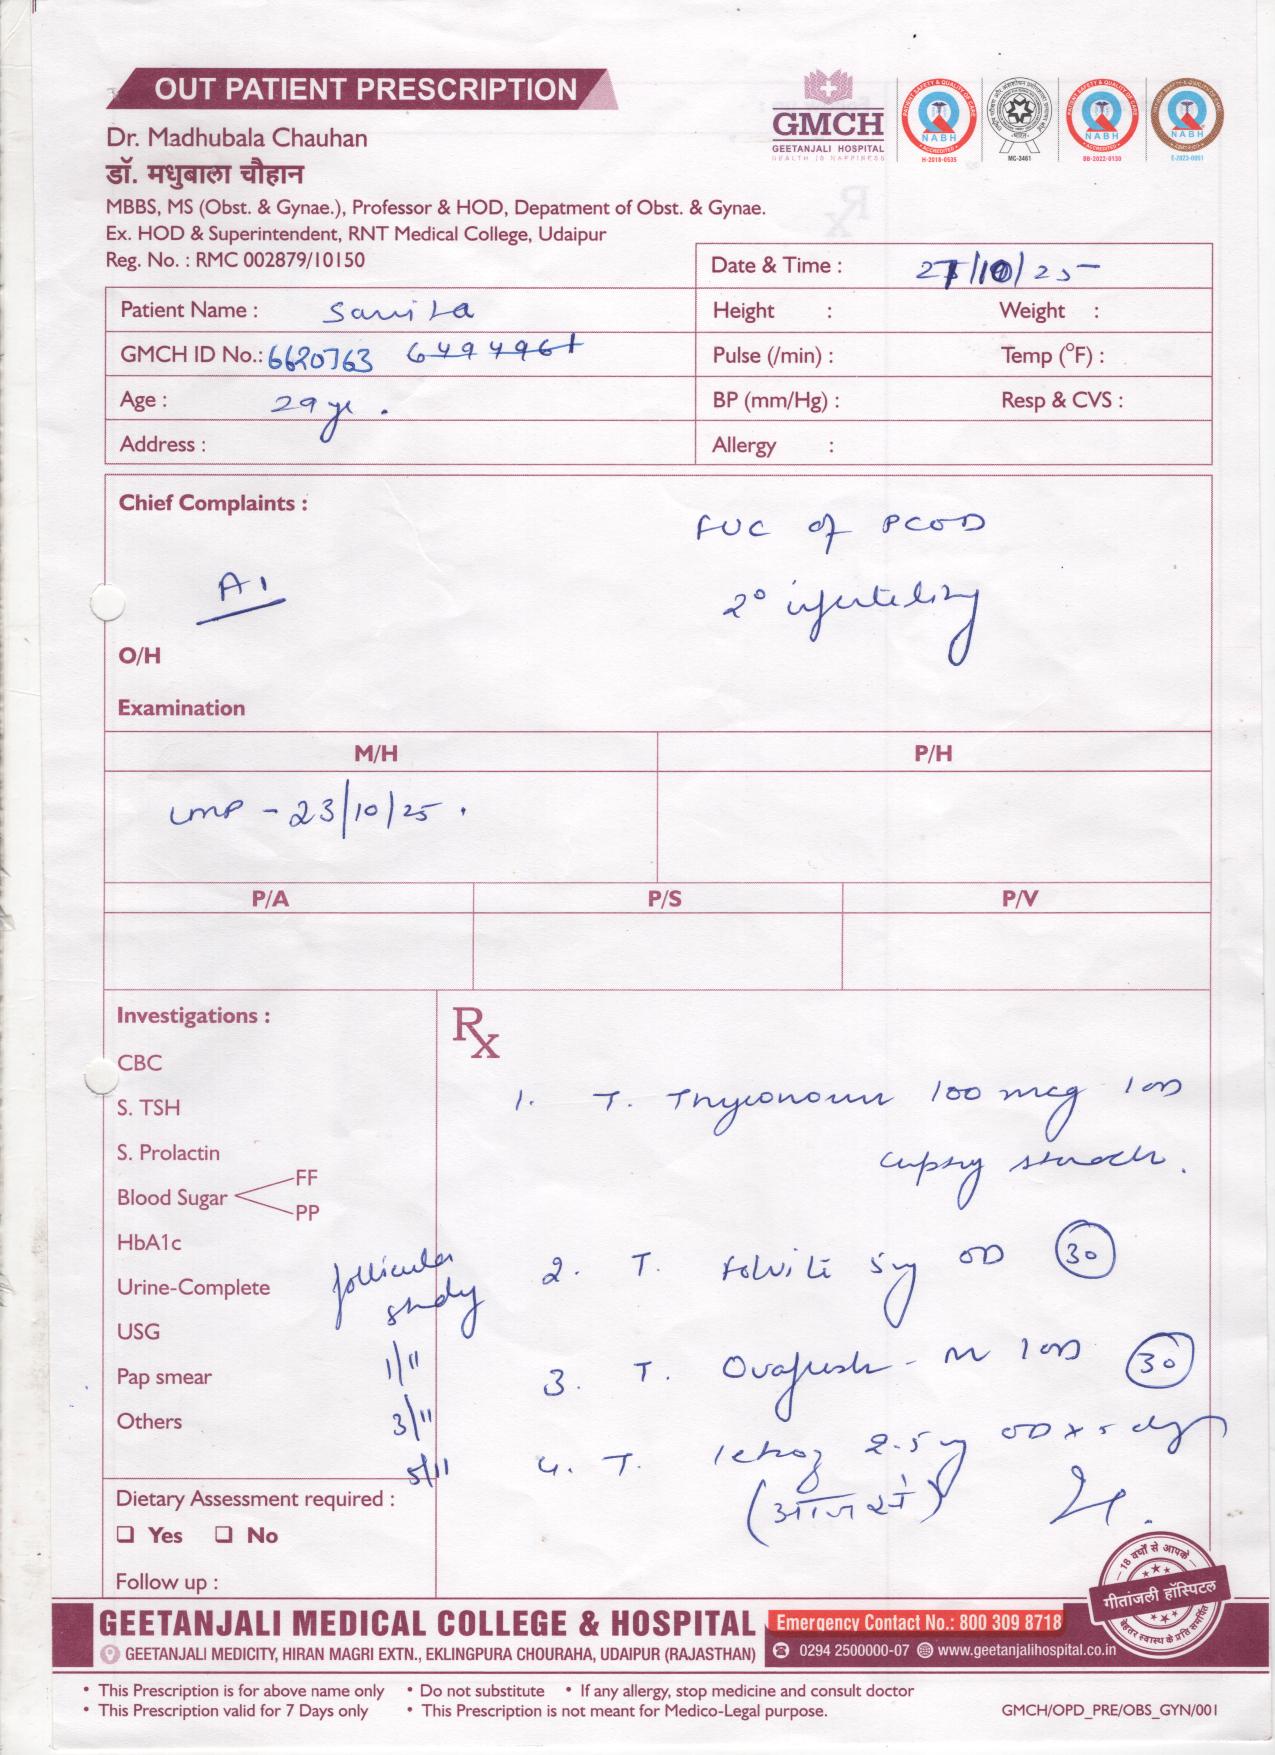 OUT PATIENT PRESCRIPTION
Dr. Madhubala Chauhan
डॉ. मधुबाला चौहान
MBBS, MS (Obst. & Gynae.), Professor & HOD, Depatment of Obst. & Gynae.
Ex. HOD & Superintendent, RNT Medical College, Udaipur
Reg. No. : RMC 002879/10150
GMCH
GEETANJALI HOSPITAL
HEALTH IS HAPPINESS
NABH
H-2018-0535
MC-3461
NABH
BB-2022-0130
NABH
E-2023-0051
Date & Time : 27/10/25
Patient Name :
Height : Weight :
GMCH ID No.: 6620763 6494961
Pulse (/min) : Temp (°F) :
Age : 29 yr.
BP (mm/Hg) : Resp & CVS :
Address :
Allergy :
Chief Complaints :
FUC of PCOD
A1
2° infertility
O/H
Examination
M/H P/H
LMP - 23/10/25.
P/A P/S P/V
Investigations :
CBC
S. TSH
S. Prolactin
Blood Sugar FF
PP
HbA1c
Urine-Complete
USG
Pap smear
Others
follicular
study
1/11
3/11
5/11
Rx
1. T. Thyronorm 100 mcg 1 OD
empty stomach.
2. T. Folvite 5mg OD 30
3. T. Ovafresh - M 1 OD 30
4. T. letroz 2.5mg OD x 5 days
(आज से)
Dietary Assessment required :
Yes No
Follow up :
18 वर्षों से आपके
गीतांजली हॉस्पिटल
बेहतर स्वास्थ के प्रति समर्पित
GEETANJALI MEDICAL COLLEGE & HOSPITAL
Emergency Contact No.: 800 309 8718
GEETANJALI MEDICITY, HIRAN MAGRI EXTN., EKLINGPURA CHOURAHA, UDAIPUR (RAJASTHAN)
0294 2500000-07 www.geetanjalihospital.co.in
• This Prescription is for above name only • Do not substitute • If any allergy, stop medicine and consult doctor
• This Prescription valid for 7 Days only • This Prescription is not meant for Medico-Legal purpose.
GMCH/OPD_PRE/OBS_GYN/001